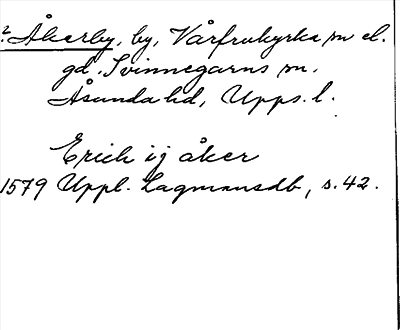 ? Åkerby, by, Vårfrukyrka sn el.
gd. Svinnegarns sn.
Åsunda hd, Upps. l.
Erich ij åker
1579 Uppl. Lagmansdb, s. 42.